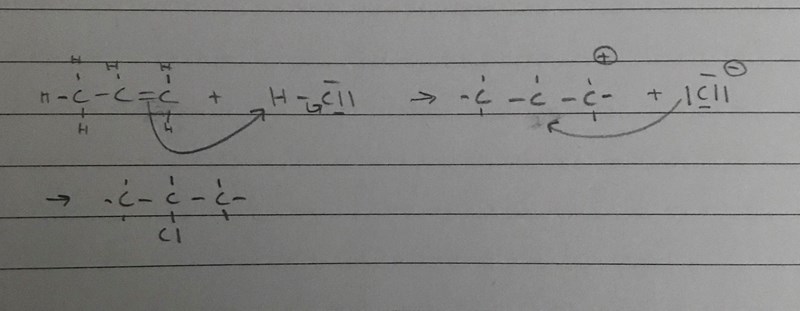 H H H
H - C - C = C + H - Cl → - C - C - C - ⊕ + |Cl| ⊖
H H
→ - C - C - C -
Cl